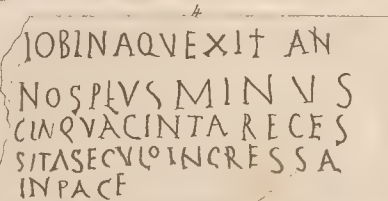 4
IOBINAQVEXIT AN
NOSPLVSMINVS
CINQVACINTARECES
SITASECVLOINCRESSA
INPACE